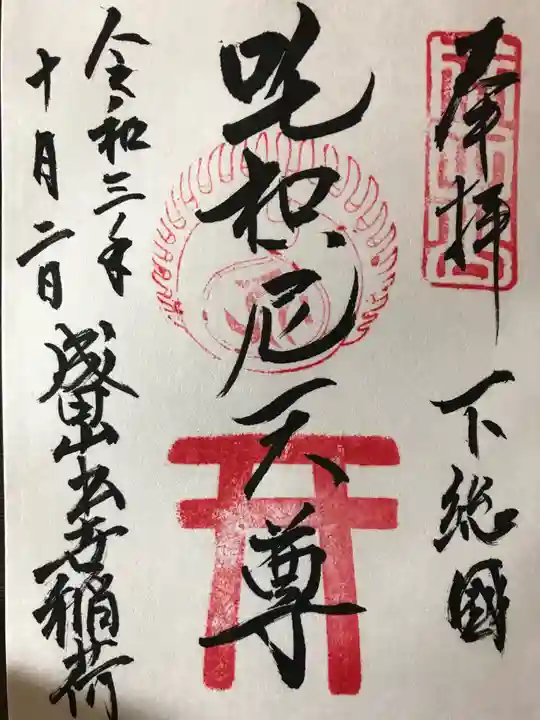 奉拝
下総國
吒枳尼天尊
令和三年
十月二日
成田山出世稲荷